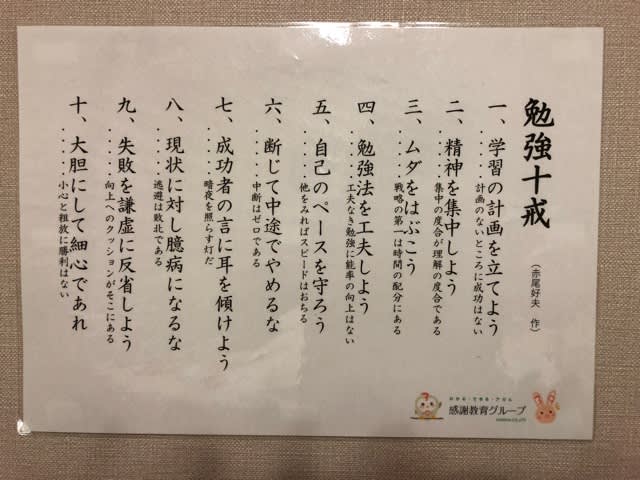 勉強十戒
（赤尾好夫　作）
一、学習の計画を立てよう
・・・・・計画のないところに成功はない
二、精神を集中しよう
・・・・・集中の度合が理解の度合である
三、ムダをはぶこう
・・・・・戦略の第一は時間の配分にある
四、勉強法を工夫しよう
・・・・・工夫なき勉強に能率の向上はない
五、自己のペースを守ろう
・・・・・他をみればスピードはおちる
六、断じて中途でやめるな
・・・・・中断はゼロである
七、成功者の言に耳を傾けよう
・・・・・暗夜を照らす灯だ
八、現状に対し臆病になるな
・・・・・逃避は敗北である
九、失敗を謙虚に反省しよう
・・・・・向上へのクッションがそこにある
十、大胆にして細心であれ
・・・・・小心と粗放に勝利はない
感謝教育グループ